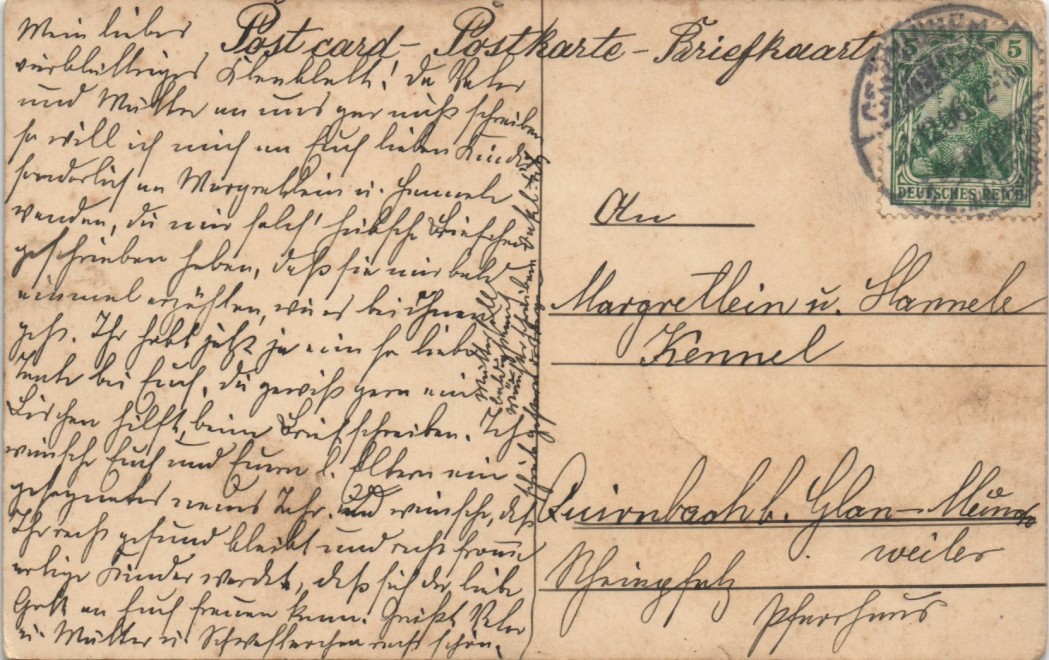 Post card – Postkarte – Briefkaart
Mein liebes
vierblättriges Kleeblatt! Da Vater
und Mutter an uns gar nicht schreiben
so will ich mich an Euch lieben Kinder
sonderlich an Margretlein u. Hannele
wenden, die mir solch' hübsche Briefchen
geschrieben haben, daß sie mir bald
einmal erzählen, wie es bei Ihnen
geht. Ihr habt jetzt ja eine so liebe
Tante bei Euch, die gewiß gern ein
bischen hilft beim Briefschreiben. Ich
wünsche Euch und Euern l. Eltern ein
gesegnetes neues Jahr und wünsche, daß
Ihr recht gesund bleibt und recht fromme
artige Kinder werdet, daß sich der liebe
Gott an Euch freuen kann. Grüßt Vater
u. Mutter u. Schwesterchen recht schön.
Mutter soll
bald
5 5
DEUTSCHES REICH
12.06
An
Margretlein u. Hannele
Kennel
Quirnbach b. Glan-Münch
weiler
Rheinpfalz
Pfarrhaus